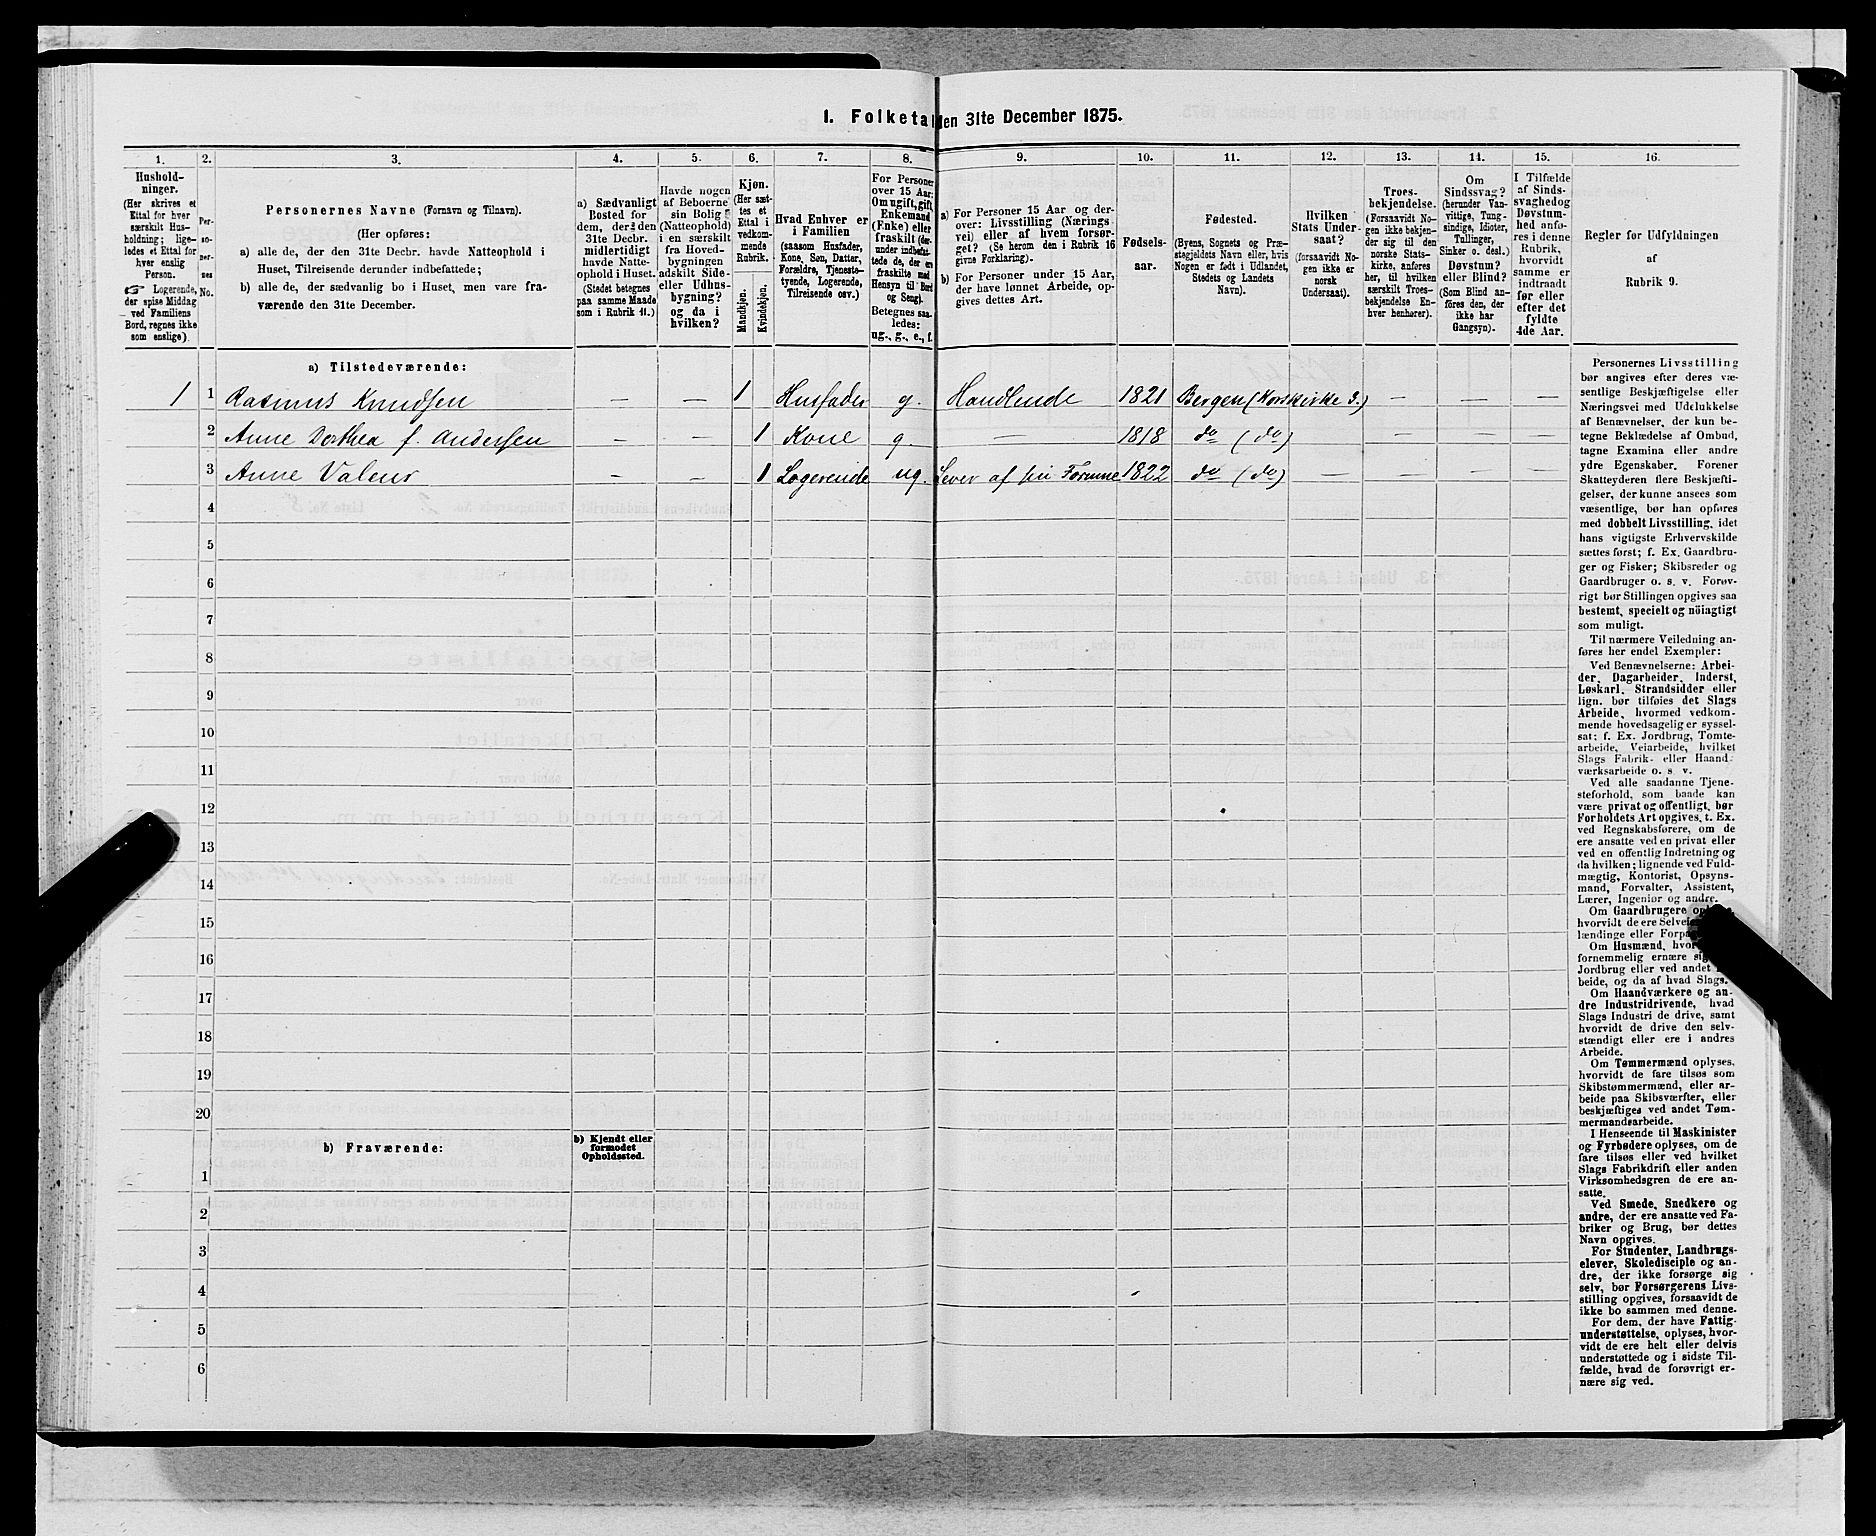 1. Folketal den 31te December 1875.
1. 2. 3. 4. 5. 6. 7. 8. 9. 10. 11. 12. 13. 14. 15. 16.
Hushold-
ninger.
(Her skrives et
Ettal for hver
særskilt Hus-
holdning; lige-
ledes et Ettal for
hver enslig
Person.
☞ Logerende,
der spise Middag
ved Familiens
Bord, regnes ikke
som enslige).
Per-
so-
ner-
nes
No.
Personernes Navne (Fornavn og Tilnavn).
(Her opføres:
a) alle de, der den 31te Decbr. havde Natteophold i
Huset, Tilreisende derunder indbefattede;
b) alle de, der sædvanlig bo i Huset, men vare fra-
værende den 31te December.
a) Sædvanligt
Bosted for
dem, der den
31te Decbr.
midlertidigt
havde Natte-
ophold i Huset.
(Stedet betegnes
paa samme Maade
som i Rubrik 11.)
Havde nogen
af Beboerne
sin Bolig
(Natteophold)
i en særskilt
fra Hoved-
bygningen
adskilt Side-
eller Udhus-
bygning?
og da i
hvilken?
Kjøn.
(Her sæt-
tes et
Ettal i
vedkom-
mende
Rubrik.
Mandkjøn.
Kvindekjøn.
Hvad Enhver er
i Familien
(saasom Husfader,
Kone, Søn, Datter,
Forældre, Tjeneste-
tyende, Logerende,
Tilreisende osv.)
For Personer
over 15 Aar:
Om ugift, gift,
Enkemand
(Enke) eller
fraskilt (der-
under indbefat-
tede de, der ere
fraskilte med
Hensyn til Bord
og Seng).
Betegnes saa-
ledes:
ug., g., e., f.
a) For Personer 15 Aar og der-
over: Livsstilling (Nærings-
vei) eller af hvem forsør-
get? (Se herom den i Rubrik 16
givne Forklaring).
b) For Personer under 15 Aar,
der have lønnet Arbeide, op-
gives dettes Art.
Fødsels-
aar.
Fødested.
(Byens, Sognets og Præ-
stegjeldets Navn eller, hvis
Nogen er født i Udlandet,
Stedets og Landets
Navn).
Hvilken
Stats Under-
saat?
(forsaavidt No-
gen ikke er
norsk
Undersaat).
Troes-
bekjendelse.
(Forsaavidt No-
gen ikke bekjen-
der sig til den
norske Stats-
kirke, anføres
her, til hvilken
særskilt Troes-
bekjendelse En-
hver henhører).
Om
Sindssvag?
(herunder Van-
vittige, Tung-
sindige, Idioter,
Tullinger,
Sinker o. desl.)
Døvstum?
eller Blind?
(Som Blind an-
føres den, der
ikke har
Gangsyn).
I Tilfælde
af Sinds-
svaghed og
Døvstum-
hed anfø-
res i denne
Rubrik,
hvorvidt
samme er
indtraadt
før eller
efter det
fyldte
4de Aar.
Regler for Udfyldningen
af
Rubrik 9.
a) Tilstedeværende:
1 1 Rasmus Knudsen — — 1 Husfader g. Handlende 1821 Bergen (Korskirke S.) — — — —
2 Anne Dorthea f. Andersen — — 1 Kone g. — 1818 do (do) — — — —
3 Anne Valens — — 1 Logerende ug. Lever af sin Formue 1822 do (do) — — — —
4
5
6
7
8
9
10
11
12
13
14
15
16
17
18
19
20
b) Fraværende:
b) Kjendt eller
formodet
Opholdssted.
1
2
3
4
5
6
Personernes Livsstilling
bør angives efter deres væ-
sentlige Beskjæftigelse eller
Næringsvei med Udelukkelse
af Benævnelser, der kun be-
tegne Beklædelse af Ombud,
tagne Examina eller andre
ydre Egenskaber. Forener
Skatteyderen flere Beskjæfti-
gelser, der kunne ansees som
væsentlige, bør han opføres
med dobbelt Livsstilling, idet
hans vigtigste Erhvervskilde
sættes først; f. Ex. Gaardbru-
ger og Fisker; Skibsreder og
Gaardbruger o. s. v. Forøv-
rigt bør Stillingen opgives saa
bestemt, specielt og nöiagtigt
som muligt.
Til nærmere Veiledning an-
føres her endel Exempler:
Ved Benævnelserne: Arbei-
der, Dagarbeider, Inderst,
Løskarl, Strandsidder eller
lign. bør tilføies det Slags
Arbeide, hvormed vedkom-
mende hovedsagelig er syssel-
sat; f. Ex. Jordbrug, Tomte-
arbeide, Veiarbeide, hvilket
Slags Fabrik- eller Haand-
værksarbeide o. s. v.
Ved alle saadanne Tjene-
steforhold, som baade kan
være privat og offentligt, bør
Forholdets Art opgives, t. Ex.
ved Regnskabsførere, om de
ere ansatte ved en privat eller
ved en offentlig Indretning og
da hvilken; lignende ved Fuld-
mægtig, Kontorist, Opsyns-
mand, Forvalter, Assistent,
Lærer, Ingeniør og andre.
Om Gaardbrugere
hvorvidt de ere
lændinge eller
Om Husmænd,
fornemmelig ernære
Jordbrug eller ved andet
beide, og da af hvad Slags.
Om Haandværkere og an-
dre Industridrivende, hvad
Slags Industri de drive, samt
hvorvidt de drive den selv-
stændigt eller ere i andres
Arbeide.
Om Tømmermænd oplyses,
hvorvidt de fare tilsøs som
Skibstømmermænd, eller ar-
beide paa Skibsværfter, eller
beskjæftiges ved andet Tøm-
mermandsarbeide.
I Henseende til Maskinister
og Fyrbødere oplyses, om de
fare tilsøs eller ved hvilket
Slags Fabrikdrift eller anden
Virksomhedsgren de ere an-
satte.
Ved Smede, Snedkere og
andre, der ere ansatte ved Fa-
briker og Brug, bør dettes
Navn opgives.
For Studenter, Landbrugs-
elever, Skoledisciple og an-
dre, der ikke forsørge sig
selv, bør Forsørgerens Livs-
stilling opgives, forsaavidt de
ikke bo sammen med denne.
For dem, der have Fattig-
understøttelse, oplyses, hvor-
vidt de ere helt eller delvis
understøttede og i sidste Til-
fælde, hvad de forøvrigt er-
nære sig ved.